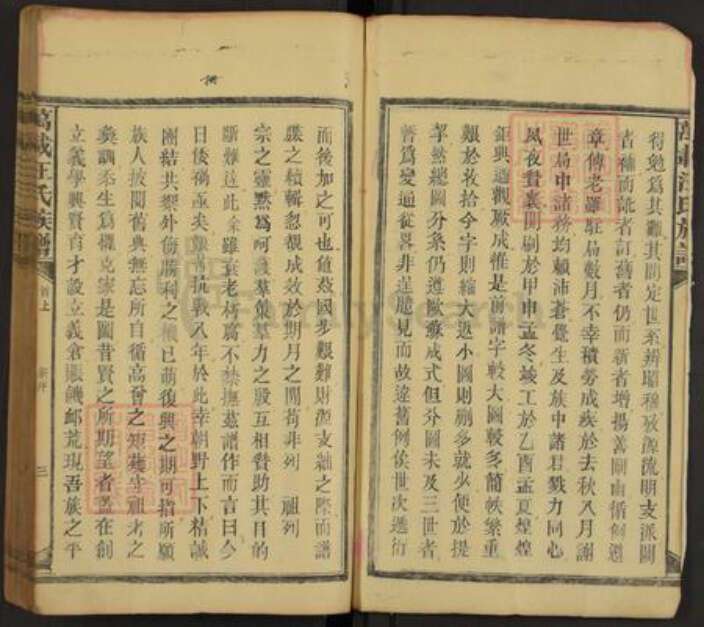 得勉為其難其間定世系辨昭穆敦源流明支派闕
者補而訛者訂舊者仍而新者增揚善闡幽循例遵
章傳老 駐局數月不幸積勞成疾於去秋八月謝
世局中諸務均賴沛蒼覺生及族中諸君戮力同心
夙夜贊襄開刷於甲申孟冬竣工於乙酉孟夏煌煌
鉅典這觀厥成惟是前譜字較大圖較多簡帙繁重
艱於收拾今字則縮大返小圖則刪多就少便於提
挈然總圖分系仍遵歐蘇成式但分圖未及三世者
皆為變通從畧非逞臆見而故違舊例俟世次遞衍
而後加之可也值茲國步艱難財源支絀之際而譜
牒之續輯忽覩成效於期月之間苟非列 祖列
宗之靈默為呵護羣策羣力之殷互相贊助其目的
斷難達此余雖衰老朽腐不禁撫茲譜作而言曰今
日後禍亟矣艱苦抗戰八年於此幸朝野上下精誠
團結共禦外侮勝利之機已萌復興之期可指所願
族人披閱舊典無忘所自循高曾之矩矱守祖考之
彝訓丕生為 克家是圖昔賢之所期望者蓋在創
立義學興賢育才設立義倉賑饑卹荒現吾族之平
萬載汪氏族譜
首上
三
萬載汪氏族譜